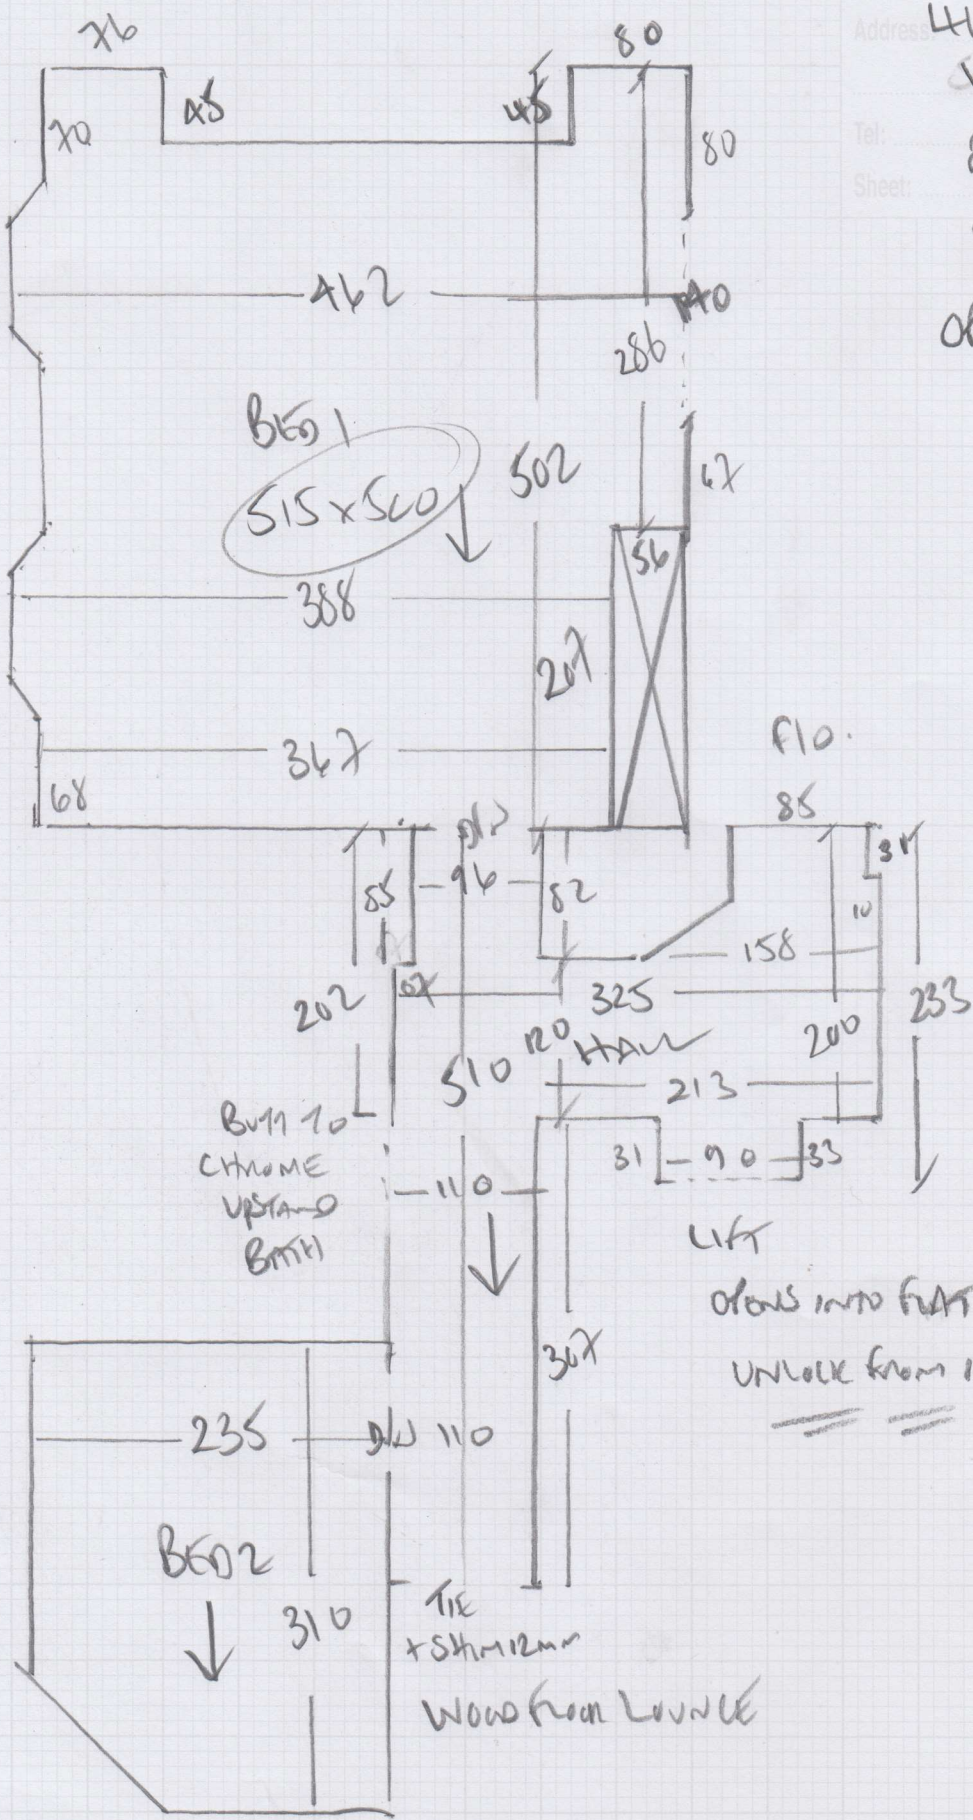 76
80
Address:
45
45
70
80
Tel:
Sheet:
462
140
286
BED 1
502
67
515 x 560
56
388
207
F/O.
367
68
85
D/W
31
85
96
82
10
158
202
07
325
233
120 HALL
200
510
213
BUTT TO
CHROME
UPSTAND
BATH
31
90
33
110
LIFT
OPENS INTO FLAT
UNLOCK FROM
367
235
D/W 110
BED 2
310
TIE
+ SHIM 12MM
WOOD FLOOR LOUNGE